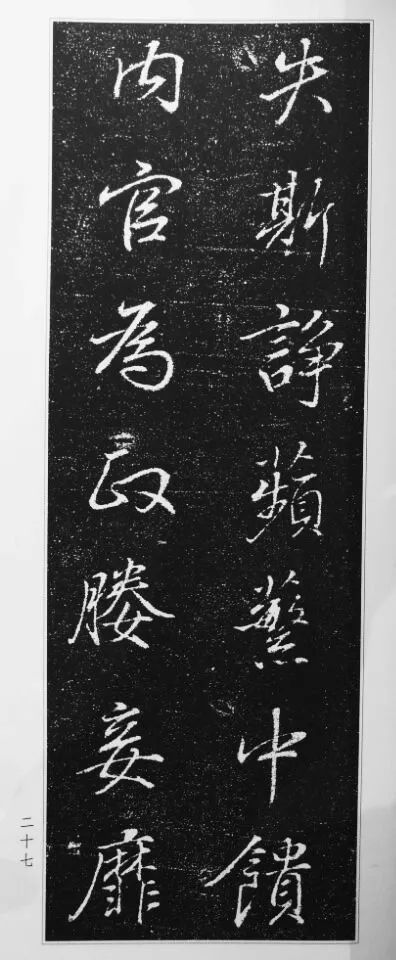 失斯諍蘋蘩中饋
内官為政媵妾靡
二十七